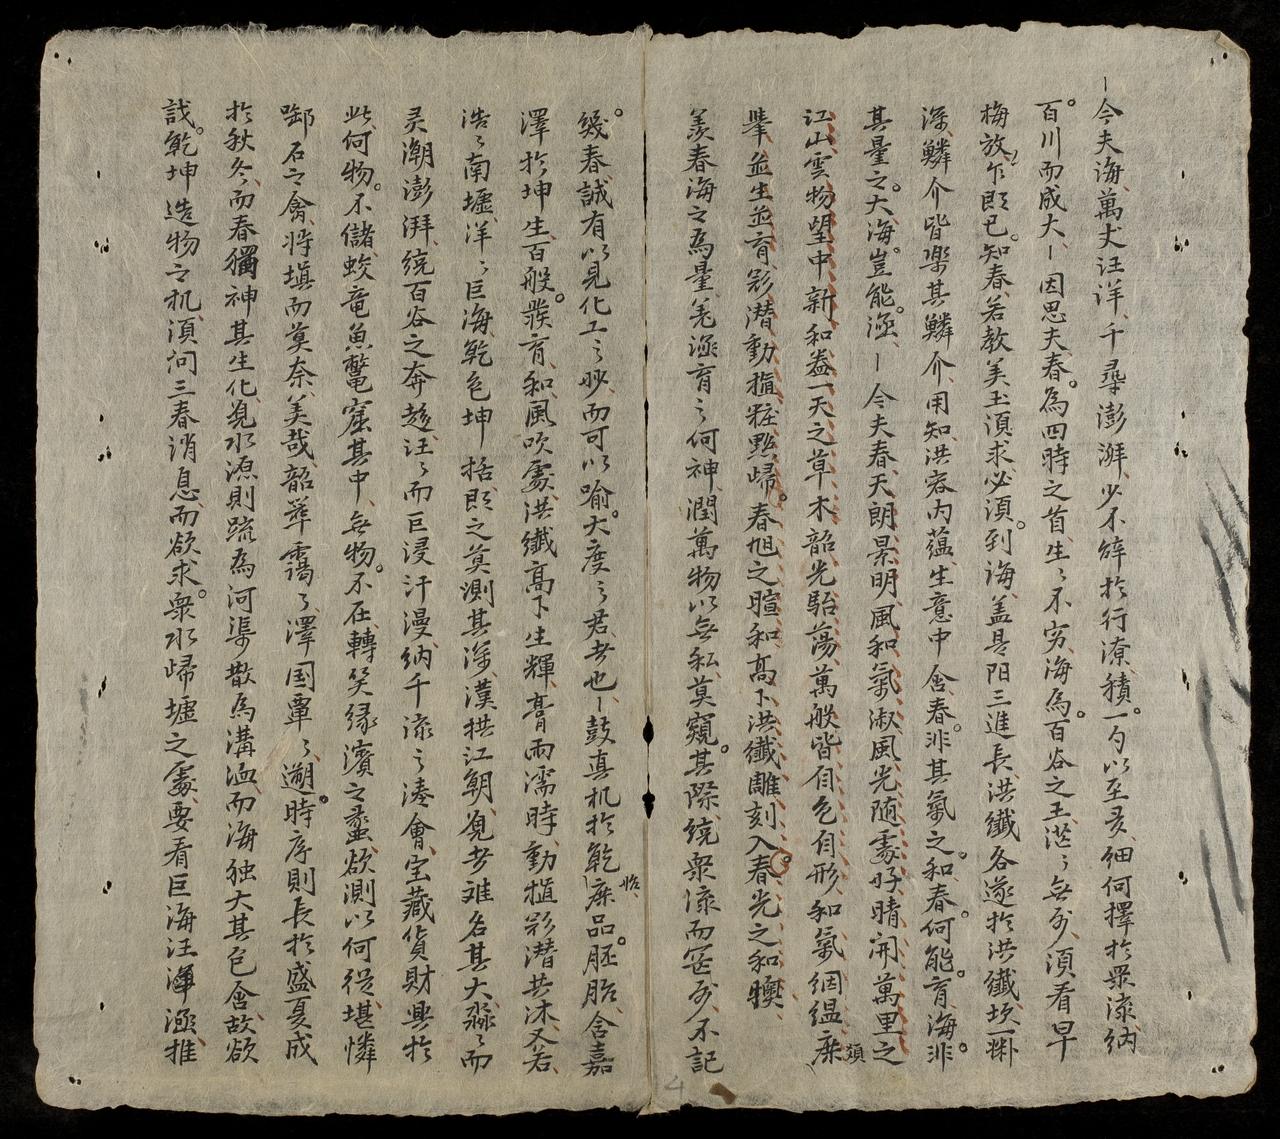 今夫海萬丈汪洋千尋澎湃少不辭於行潦積一勺以至多細何擇於眾流納
百川而成大因思夫春為四時之首生〻不穷海為百谷之王茫〻無外須看早
梅放乍即已知春若教美玉須求必須到海盖是阳三進長洪纖各遂於洪纖坎一
深鱗介皆樂其鱗介用知洪容內蘊生意中含春非其氣之和春何能育海非
其量之大海豈能涵今夫春天朗景明風和氣淑風光随處好晴開萬里之
江山雲物望中新和盎一天之草木韶光駘蕩萬般皆自色自形和氣絪縕庶類
羣並生並育彩潛動植粧點歸春旭之暄和高下洪纖雕刻入春光之和𣋉
羨春海之為量羌涵育之何神潤萬物以無私莫窺其際繞眾流而罔外不記
幾春誠有以見化工之妙而可以喻大度之君者也鼓真机於乾庶品胚胎含嘉
澤於坤生百般發育和風吹處洪纖高下生輝膏雨濡時動植彩潛共沐又若
浩〻南墟洋〻巨海乾包坤括即之莫測其深漢拱江朝覓者难名其大淼〻而
灵潮澎湃繞百谷之奔趍汪〻而巨浸汗漫納千流之湊會宝藏貨財興於
此何物不儲蛟竜魚鱉窟其中無物不在轉笑缘濱之蠡欲測以何從堪憐
啣石之禽将填而莫奈美哉韶華靄〻澤国覃〻遡時序則長於盛夏成
於秋冬而春獨神其生化覓水源則疏為河渠散為溝洫而海独大其包含故欲
識乾坤造物之机須问三春消息而欲求眾水歸墟之處要看巨海汪渾涵推